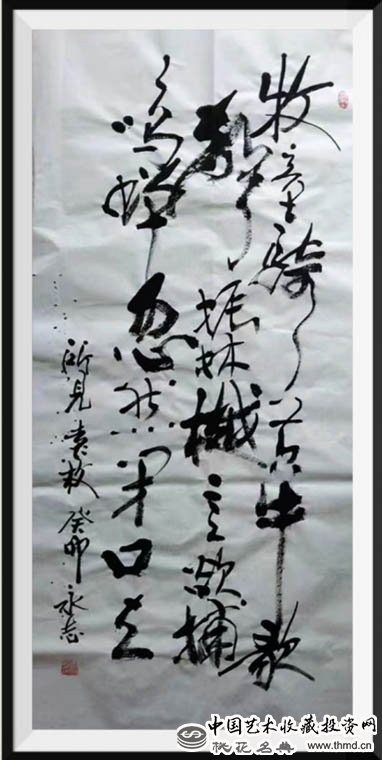 牧童騎黄牛歌
聲振林樾意欲捕
鳴蟬忽然閉口立
所見袁枚癸卯永志
中国艺术收藏投资网
桃花名典 www.thmd.cn